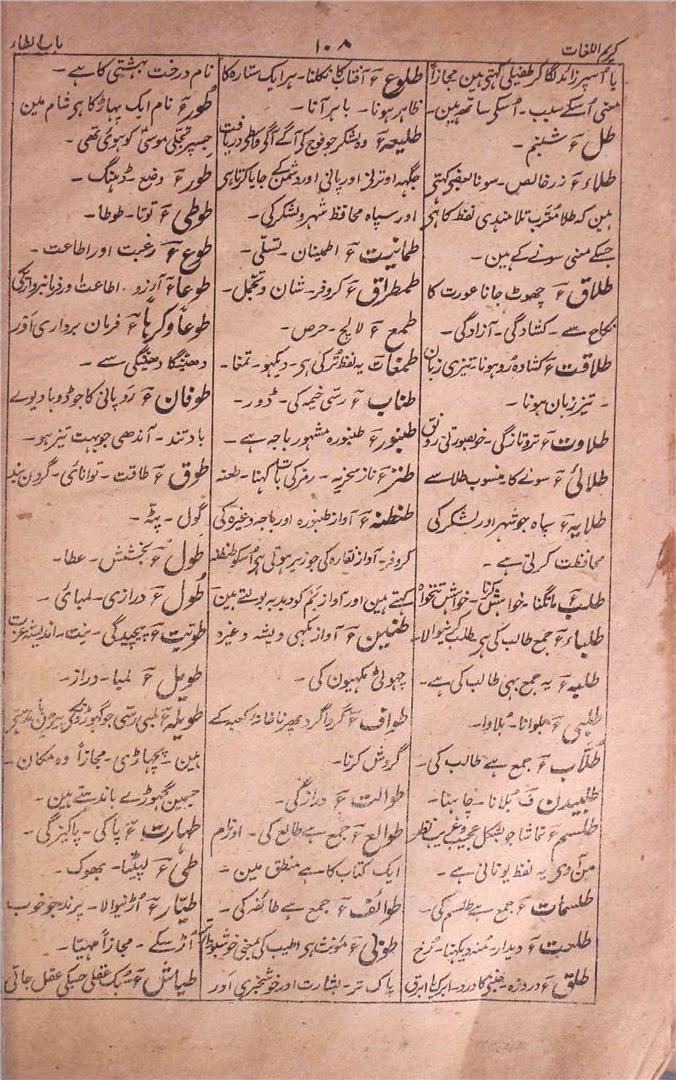 کریم اللغات
۱۰۸
باب الطاء
یا اسپر زائد لگا کر طفیلی کہتی ہین مجازاً
معنی اُسکے سبب - اُسکی ساتھ ہین -
طل ؏ شبنم -
طلاء ؏ زر خالص - سونا بعضی کہتی
ہین کہ طلا معرّب تلا ہندی لفظ کا ہی
جسکے معنی سونے کے ہین -
طلاق ؏ چھوٹ جانا عورت کا
نکاح سے - کشادگی - آزادگی -
طلاقت ؏ کشادہ رُو ہونا - تیزی زبان
- تیز زبان ہونا -
طلاوت ؏ تروتازگی - خوبصورتی رونق
طلائی ؏ سونے کا منسوب طلا سے
طلایہ ؏ سپاہ جو شہر اور لشکر کی
محافظت کرتی ہے -
طلب ؏ مانگنا - خواہش کرنا - خواہش تنخواہ
طلباء ؏ جمع طالب کی ہی طلب کرنیوالا -
طلبہ ؏ یہ جمع بہی طالب کی ہے -
طلبی ؏ بلوانا - بُلاوا -
طُلّاب ؏ جمع ہے طالب کی -
طلبیدن ف بُلانا - چاہنا -
طلسم ؏ تماشا جو بشکل عجیب و غریب نظر
یہ لفظ یونانی ہے -
طلسمات ؏ جمع ہے طلسم کی -
طلعت ؏ دیدار - مُنہ دیکہنا - رُخ
طلق ؏ دردِ زہ - جننی کا درد - ابرک یا ابرق
طلوع ؏ آفتاب کا نکلنا - ہر ایک ستارہ کا
ظاہر ہونا - باہر آنا -
طلیعہ ؏ وہ لشکر جو فوج کی آگے آگی واسطی دریافت
جگہہ اوترنی اور پانی اور دشمن کے جایا کرتا ہی
اور سپاہ محافظ شہر و لشکر کی -
طمانیت ؏ اطمینان - تسلّی -
طمطراق ؏ کروفر - شان و تجمل -
طمع ؏ لالچ - حرص -
طمغات یہ لفظ ترکی ہی - دیکہو - تمغا -
طناب ؏ رسّی خیمہ کی - ڈور -
طنبور ؏ طنبورہ مشہور باجہ ہے -
طنز ؏ ناز سخریہ - رمز کی بات کہنا - طعنہ
طنطنہ ؏ آواز طنبورہ اور باجہ وغیرہ کی
کروفر - آواز نقارہ کی جو زیر ہوتی ہی اُسکو طنطنہ
کہتے ہین اور آواز بم کو دبدبہ بولتے ہین
طنین ؏ آواز مکہی و پشہ وغیرہ
چہوٹی مکہیون کی -
طواف ؏ گرداگرد پھرنا خانہ کعبہ کے
گردش کرنا -
طوالت ؏ درازگی -
طوالع ؏ جمع ہے طالع کی - اور نام
ایک کتاب کا ہے منطق مین -
طوائف ؏ جمع ہے طائفہ کی -
طوبیٰ ؏ مونث ہی اطیب کی بمعنی خوشبودار
پاک تر - بشارت اور خوشخبری اور
نام درخت بہشتی کا ہے -
طُور ؏ نام ایک پہاڑ کا ہی شام مین
جسپر تجلّی موسیٰ کو ہوئی تھی -
طور ؏ وضع - ڈہنگ -
طوطی ؏ توتا - طوطا -
طوع ؏ رغبت اور اطاعت -
طوعاً ؏ آرزو - اطاعت اور فرمانبرداری کی
طوعاً وکرہاً ؏ فرمان برداری اَور
دھینگا دھینگی سے -
طوفان ؏ رَو پانی کا جو ڈوبا دیوے
باد تند - آندھی جو بہت تیز ہو -
طوق ؏ طاقت - توانائی - گردن بند
گول - پٹہ -
طَول ؏ بخشش - عطا -
طُول ؏ درازی - لمبائی -
طویت ؏ پیچیدگی - نیت - اندیشہ
طویل ؏ لمبا - دراز -
طویلہ ؏ لمبی رسّی جو گہوڑونکی پیرون مین باندہتے
ہین - پچہاڑی - مجازاً وہ مکان -
جسمین گہوڑے باندہتے ہین -
طہارت ؏ پاکی - پاکیزگی -
طی ؏ لپیٹنا - بھوک -
طیّار ؏ اُڑنیوالا - پرندہ جو خوب
اُڑ سکے - مجازاً مہیّا -
طیاش ؏ سُبک عقلی جسکی عقل جاتی